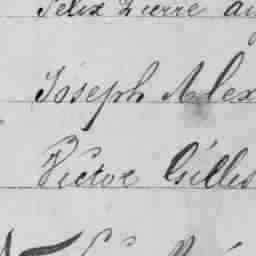 Felix Pierre au
Joseph Alex
Victor Gilles